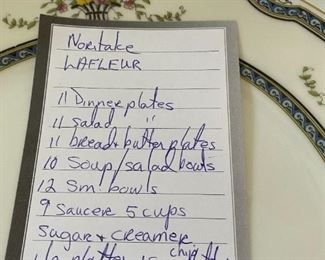 Noritake
LAFLEUR
11 Dinner plates
11 Salad "
11 bread + butter plates
10 Soup/salad bowls
12 Sm. bowls
9 Saucers 5 cups
Sugar + Creamer
chip
platter